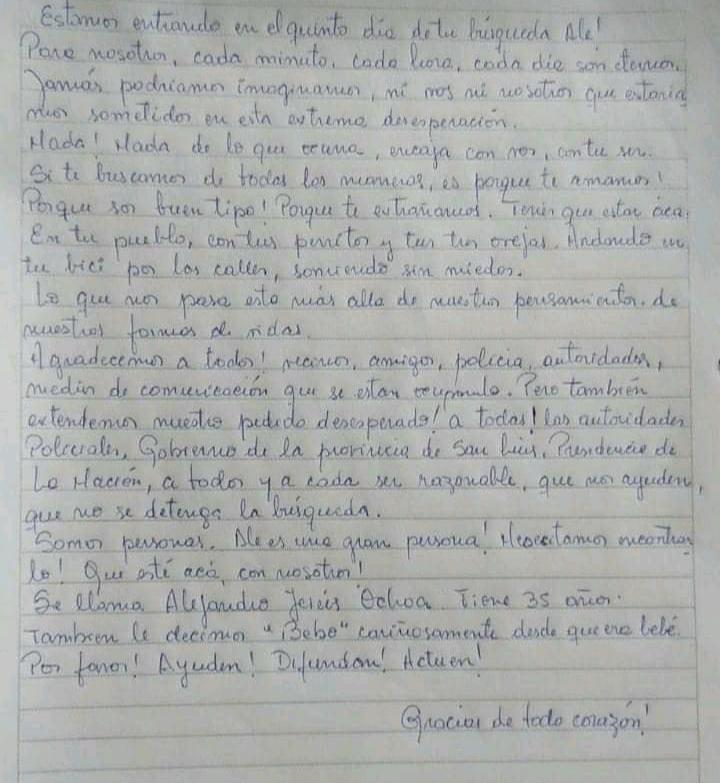 Estamos entrando en el quinto día de tu búsqueda Ale!
Para nosotros, cada minuto, cada hora, cada día son eternos.
Jamás podríamos imaginarnos, ni vos ni nosotros que estaría
mos sometidos en esta extrema desesperación.
Nada! Nada de lo que ocurra, encaja con vos, con tu ser.
Si te buscamos de todas las maneras, es porque te amamos!
Porque sos buen tipo! Porque te extrañamos. Tenés que estar acá,
En tu pueblo, con tus perritos y tus tus orejas. Andando en
tu bici por las calles, sonriendo sin miedos.
Lo que nos pasa esta más alla de nuestros pensamientos. de
nuestras formas de vidas.
Agradecemos a todos! vecinos, amigos, policía, autoridades,
medios de comunicación que se estan ocupando. Pero también
extendemos nuestro pedido desesperado! a todas! las autoridades
Policiales, Gobierno de la provincia de San Luis, Presidencia de
La Nación, a todos y a cada ser razonable, que nos ayuden,
que no se detenga la búsqueda.
Somos personas. Ale es una gran persona! Necesitamos encontrar
lo! Que esté acá, con nosotros!
Se llama Alejandro Jesús Ochoa. Tiene 35 años.
Tambien le decimos "Bebo" cariñosamente desde que era bebé.
Por favor! Ayuden! Difundan! Actuen!
Gracias de todo corazón!